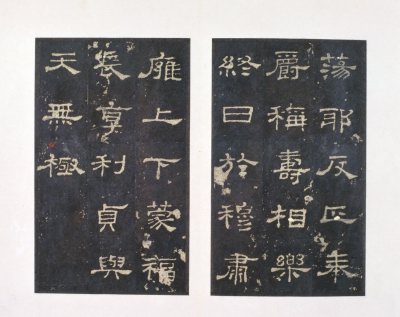 蕩邪反正奉
爵稱壽相樂
終日於穆肅
雍上下蒙福
長享利貞與
天無極